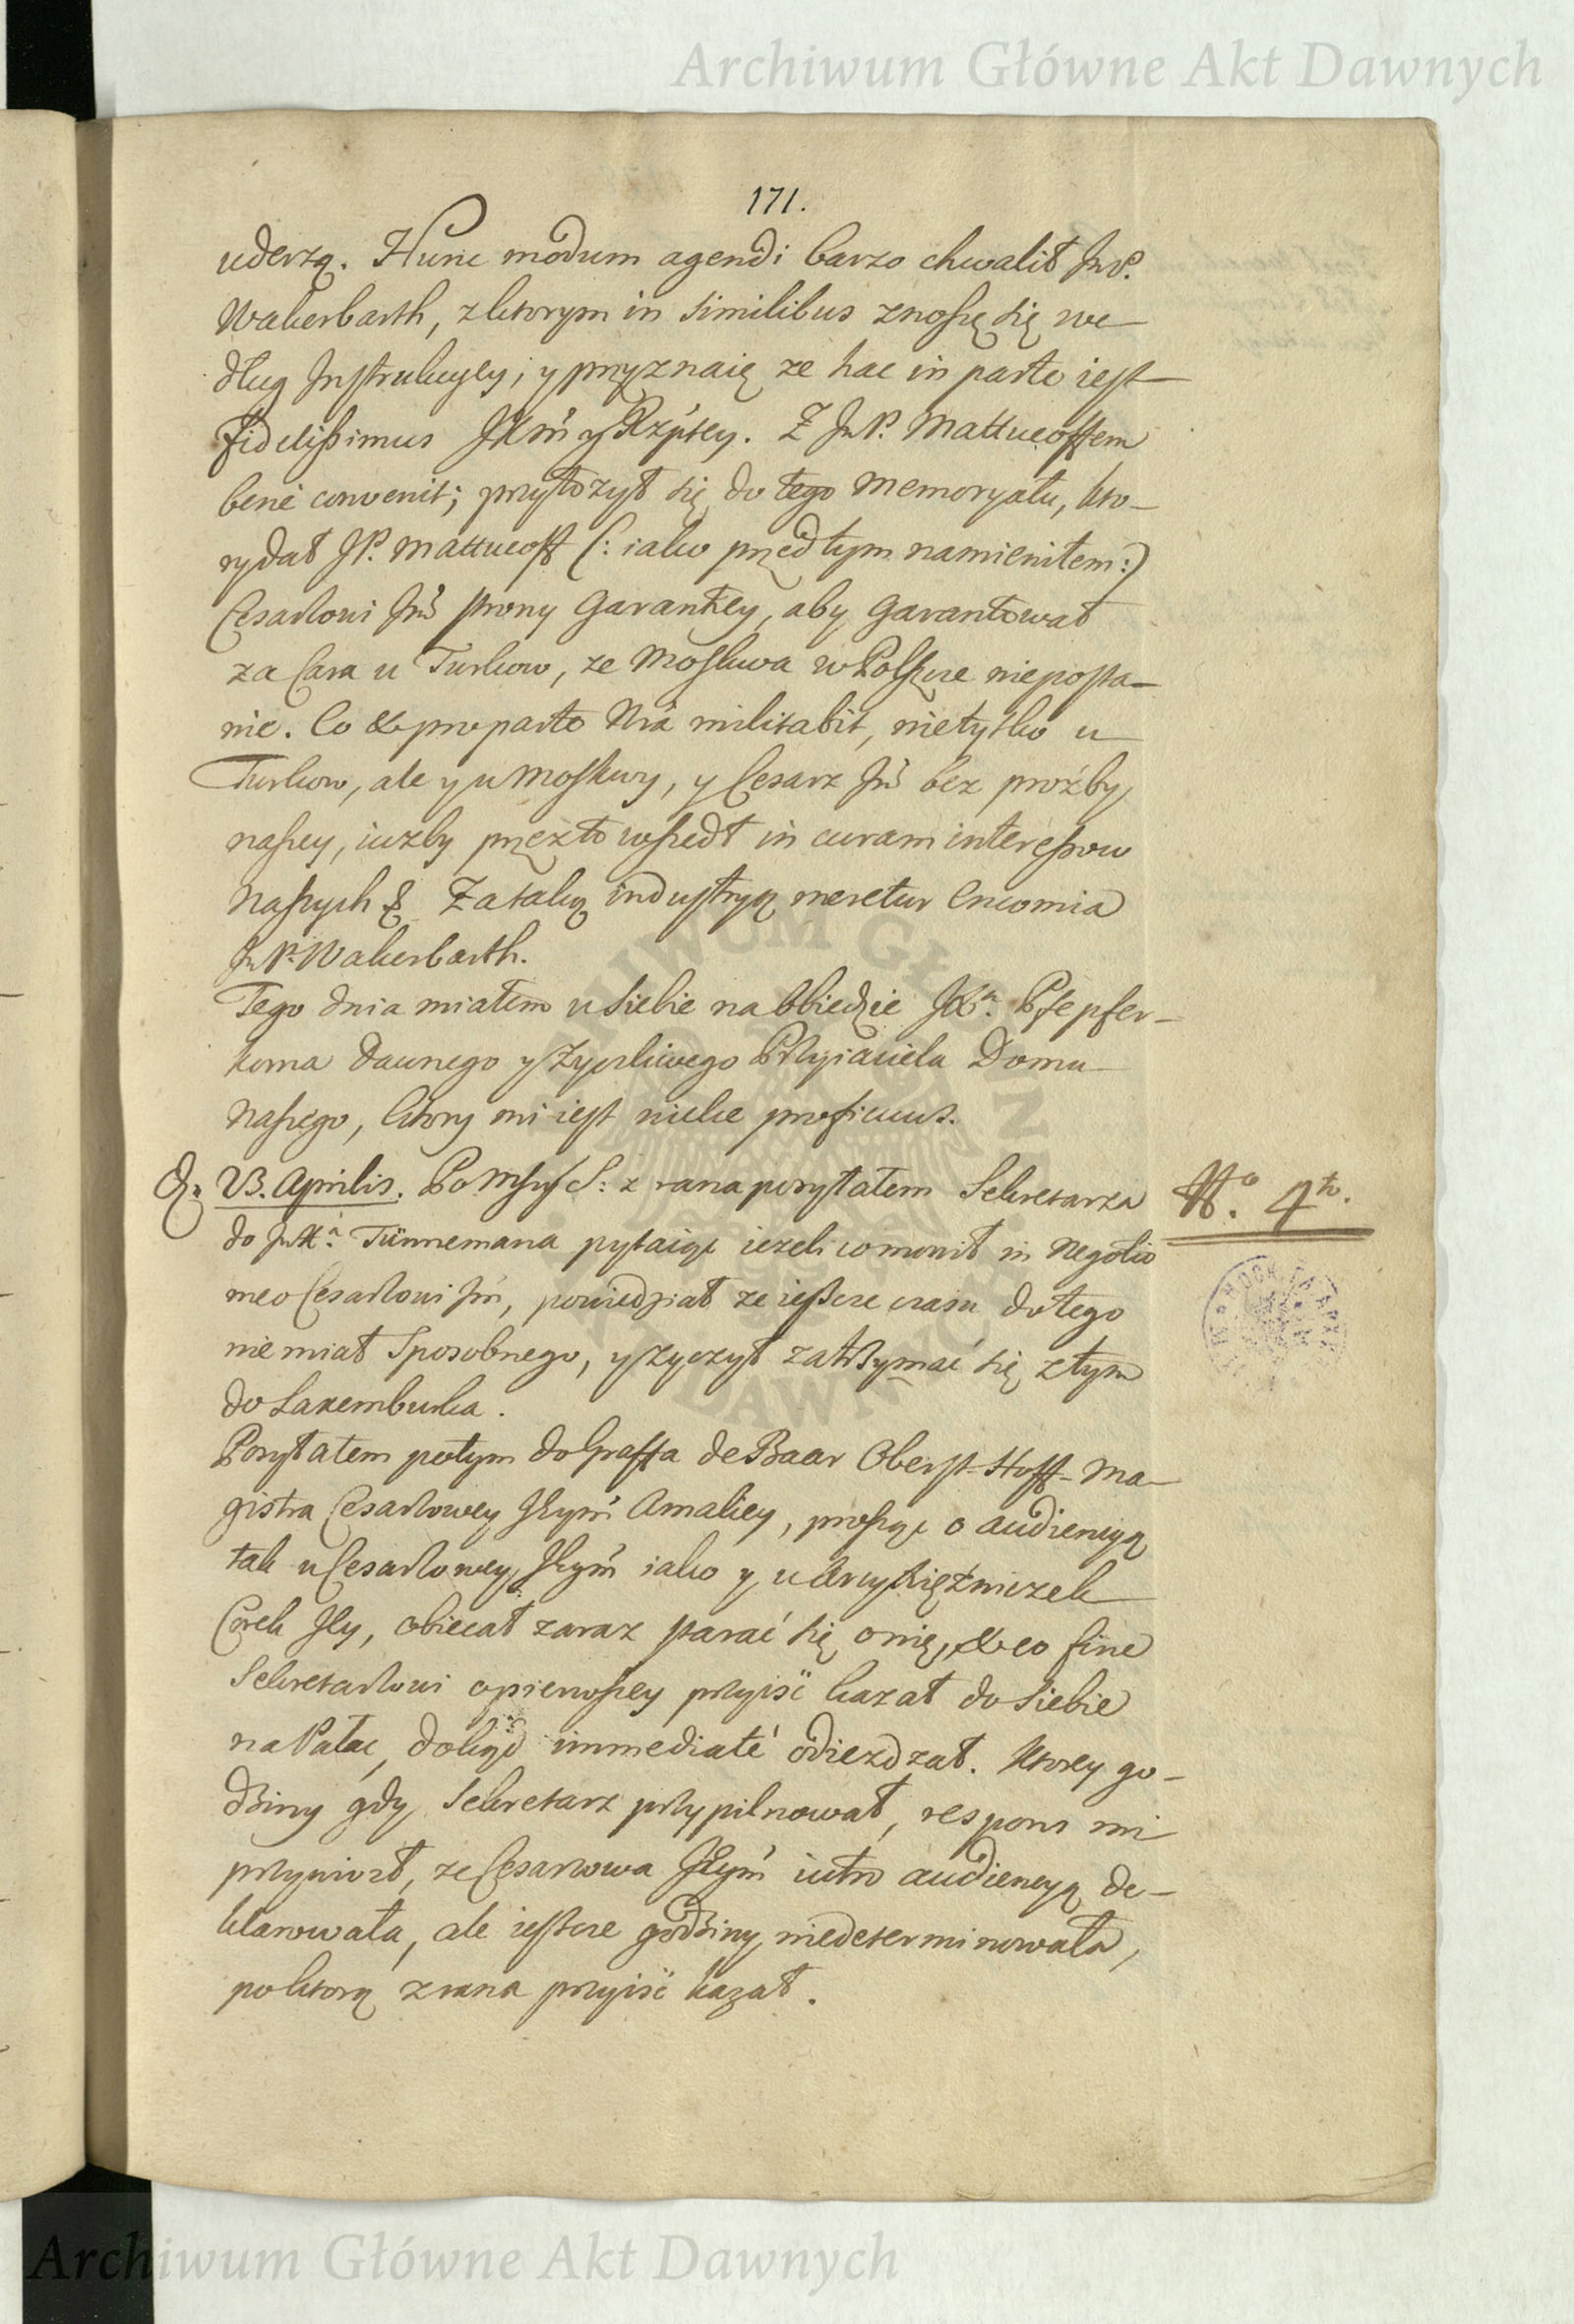 Archiwum Główne Akt Dawnych
171.
uderzą. Hunc modum agendi barzo chwalił JmP.
Wakerbarth, z ktorym in similibus znoszę się we-
dług Jnstrukcyey; y przyznaię ze hac in parte iest
fidelissimus JKm̃ y Rzptey. Z JmP. Mattueoffem
bene convenit; przyłozył się do tego Memoryału, kto-
ry dał JP. Mattueoff (: iako przed tym namieniłem :)
Cesarzowi Jm̃ strony Garantiey, aby Garantował
za Cara u Turkow, ze Moskwa w Polszcze nieposta-
nie. Co & pro parte Nrã militabit, nie tylko u
Turkow, ale y u Moskwy, y Cesarz Jm̃ bez proźby
naszey, iuzby przezto wszedł in curam interessow
Naszych &. Za taką industryą meretur Encomia
JmP. Wakerbarth.
Tego dnia miałem u siebie na Obiedzie JKa. Pfepfer-
korna dawnego y Zyczliwego Przyiaciela Domu
Naszego, ktory mi iest wielce proficuus.
23. Aprilis. Po Mszy S: z rana posyłałem Sekretarza
No. 4to.
do JmKa. Tünnemana pytaiąc iezeli co mowił in Negotio
meo Cesarzowi Jm̃, powiedział ze ieszcze czasu do tego
nie miał Sposobnego, y zyczył zatrzymać się z tym
do Laxemburka.
Posyłałem potym do Graffa de Baar Oberst-Hoff-Ma-
gistra Cesarzowey Jeym̃ Amaliey, prosząc o audiencyą
tak u Cesarzowey Jeym̃ iako y u Arcyksięźniczek
Corek Jey, obiecał zaraz starać się o nię, & eo fine
Sekretarzowi o pierwszey przyiść kazał do siebie
na Pałac, dokąd immediatè odiezdzał. Ktorey go-
dziny gdy Sekretarz przypilnował, respons mi
przyniosł, ze Cesarzowa Jeym̃ iutro audiencyą de-
klarowała, ale ieszcze godziny niedeterminowała,
po ktorą z rana przyiść kazał.
Archiwum Główne Akt Dawnych